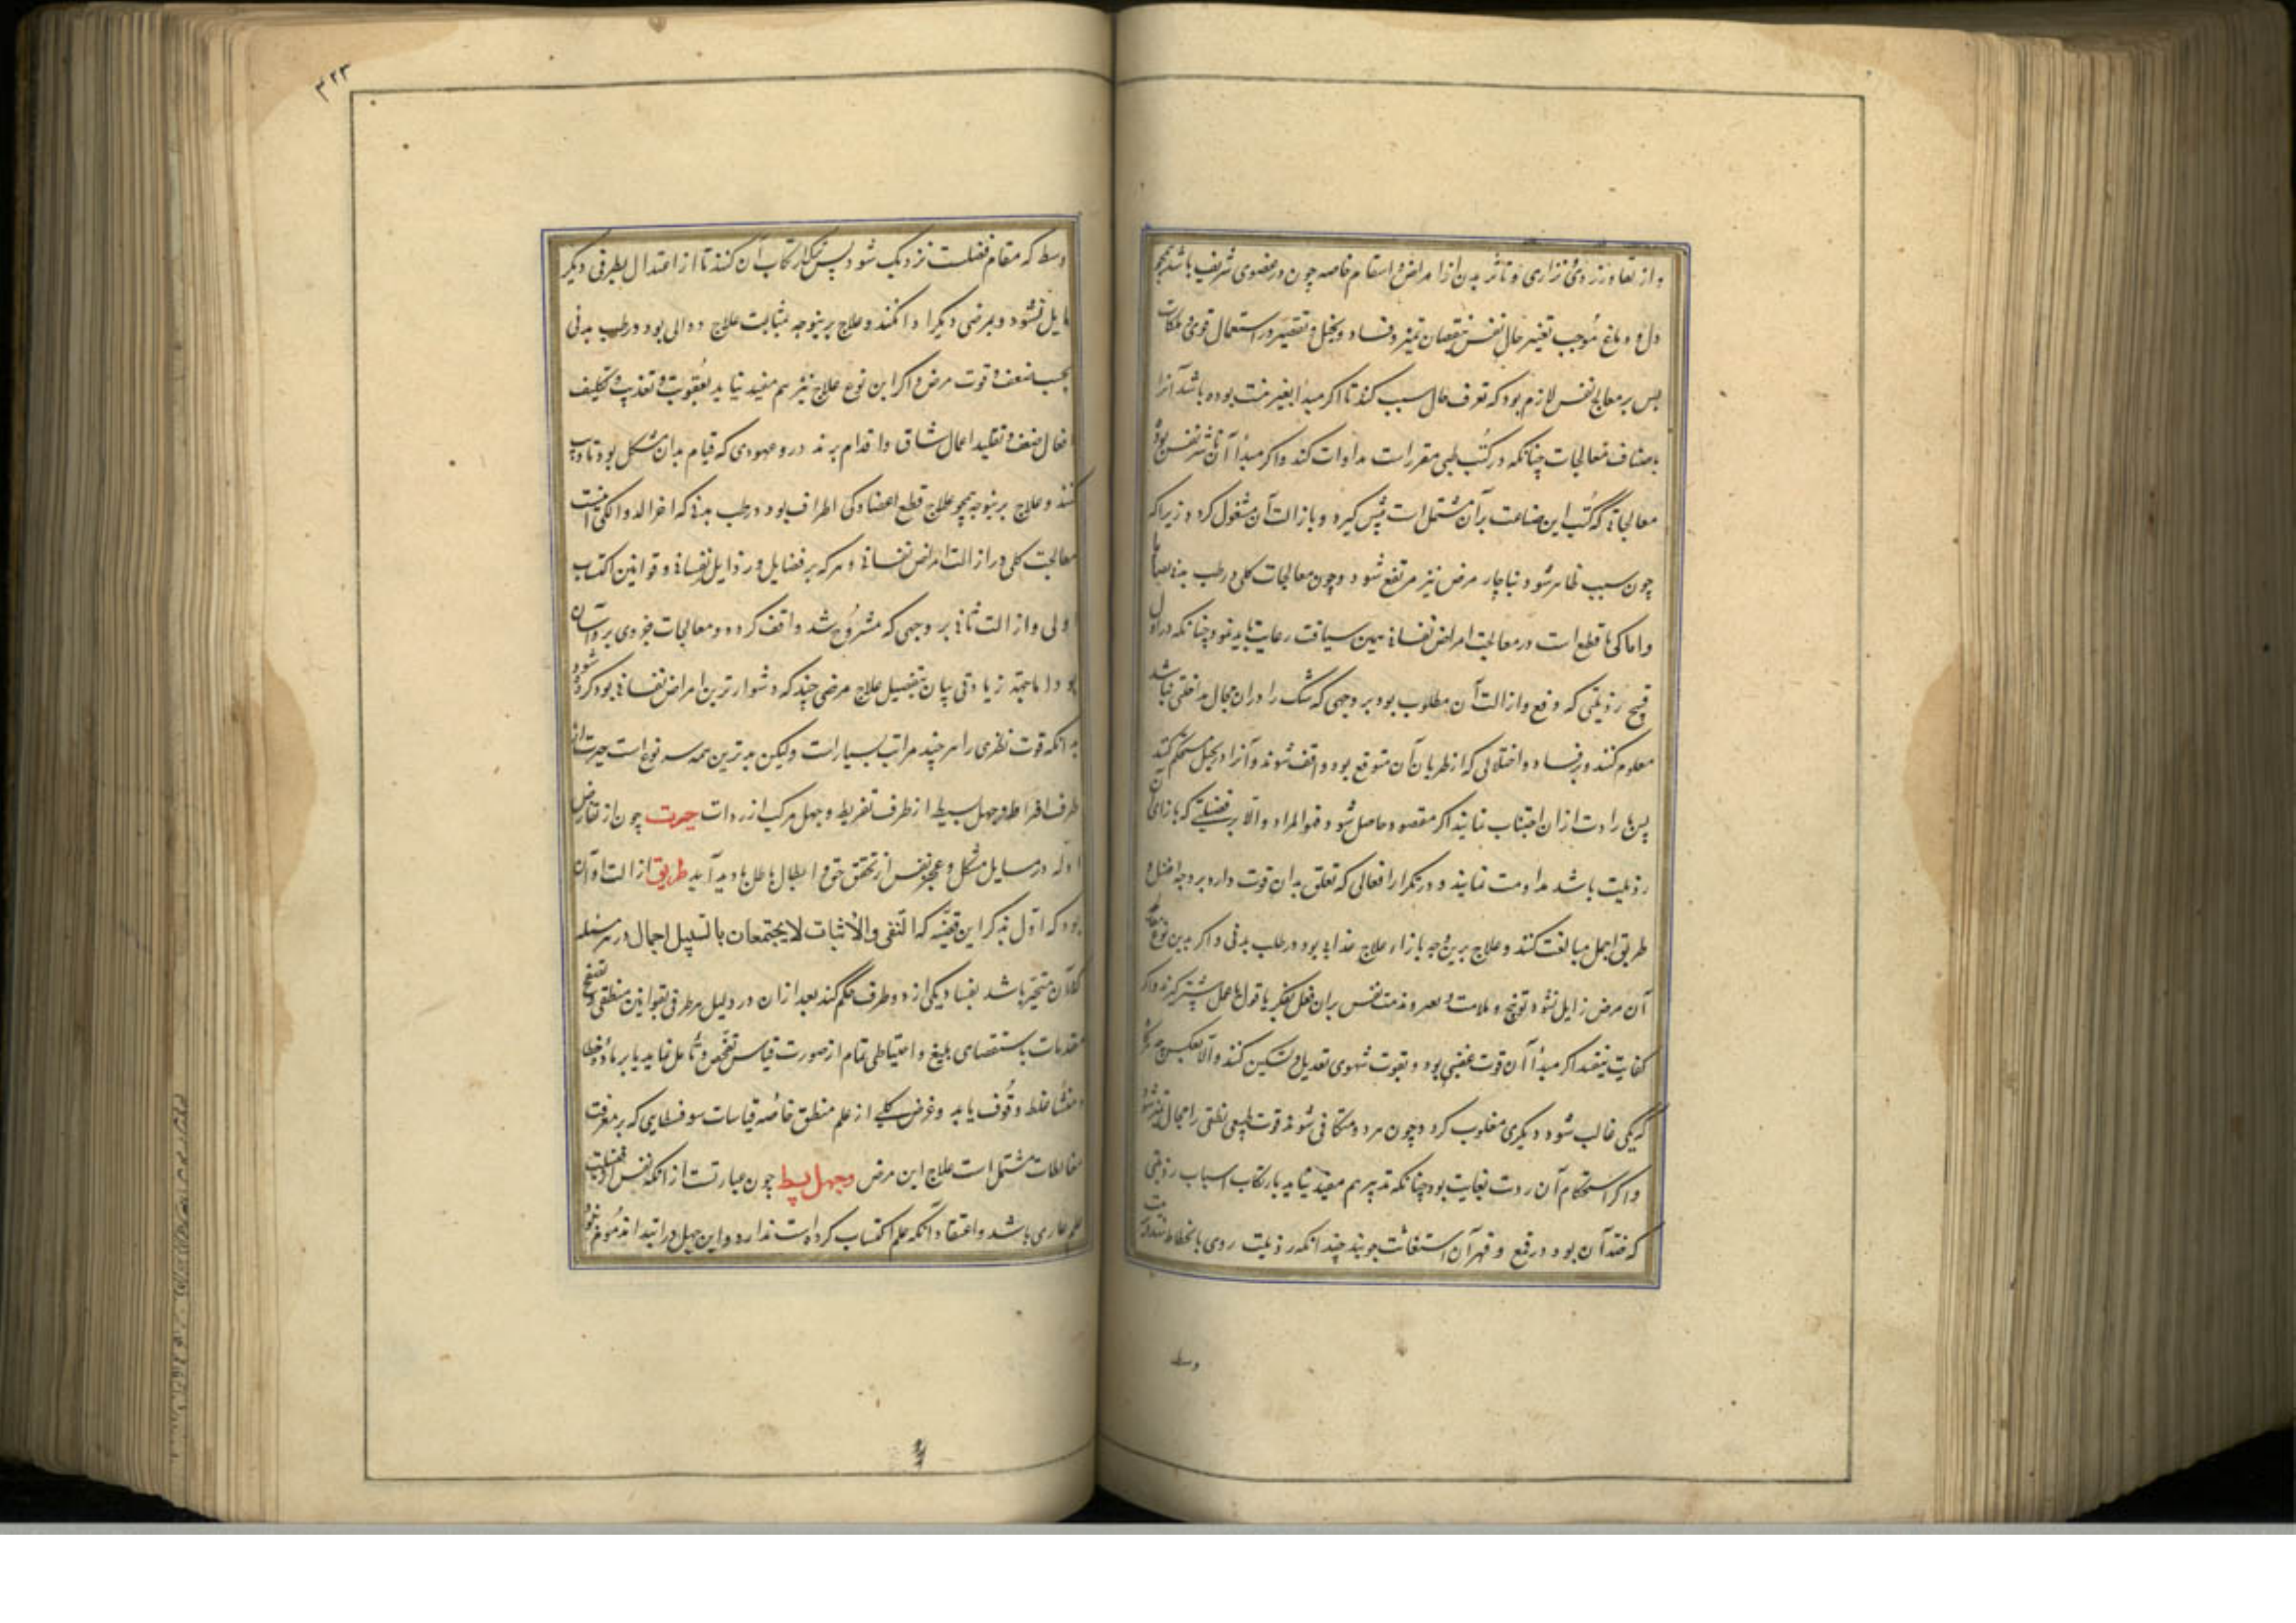 و از تعاور زردی و نزاری و تاثر بدن از امراض و اسقام خاصه چون در عضوی شریف باشد همچو
دل و دماغ موجب تغییر حال نفس بنقصان تمیز و فساد و تخیل و تقصیر در استعمال قوی و ملکات
پس بر معالج نفس لازم بود که تعرف حال سبب کند تا اگر مبدا بغیر منت بوده باشد آنرا
باصناف معالجات چنانکه در کتب طبی مقررات مداوات کند و اگر مبدأ آن تاثر نفس بود
معالجاتی که کتب این صناعت برآن مشتمل است پیش گیرد و بازالت آن مشغول گردد زیرا که
چون سبب ظاهر شود ناچار مرض نیز مرتفع شود و چون معالجات کلی در طب بدنی
و اما کی یا قطع است در معالجت امراض نفسانی بهمین سیاقت رعایت باید نمود چنانکه در اول
قبح رذیلتی که دفع و ازالت آن مطلوب بود بر وجهی که شک را در ان مجال مداخلتی نباشد
معلوم کنند و بر فساد و اختلالی که از طریان آن متوقع بود واقف شوند و آنرا در تخیل مستحکم کنند
پس بارادت ازان اجتناب نمایند اگر مقصود حاصل شود فهو المراد و الا بر فضیلتی که بازای آن
رذیلت باشد مداومت نمایند و در تکرار افعالی که تعلق بدان قوت دارد بر وجه افضل و
طریق اجمل مبالغت کنند و علاج برین وجه بازاء علاج غذایی بود در طب بدنی و اگر بدین نوع معالجه
آن مرض زایل نشود توبیخ و ملامت و مذمت نفس بران فعل بفکر یا قول یا عمل پیش گیرند و اگر
کفایت نیفتد اگر مبدأ آن قوت غضبی بود بقوت شهوی تعدیل و تسکین کنند و الا بعکس چه هرگاه
که یکی غالب شود دیگری مغلوب گردد و چون هر دو متکافی شوند قوت نطقی را مجال تمیز شود
و اگر استحکام آن ردت بغایت بود چنانکه تدبیر هم مفید نیاید بارتکاب اسباب رذیلتی
که ضد آن بود در قمع و قهر آن استغاثت جویند چندانکه رذیلت روی بانحطاط نهد و بمرتبت
وسط
۳۲۳
وسط که مقام فضیلت نزدیک شود پس ترک ارتکاب آن کنند تا از اعتدال بطرفی دیگر
مایل نشود و بمرضی دیگر ادا نکند و علاج برینوجه بمثابت علاج دوایی بود در طب بدنی
بحسب ضعف و قوت مرض و اگر این نوع علاج نیز هم مفید نیاید بعقوبت و تعذیب و تکلیف
افعال صعب و تقلید اعمال شاق و اقدام بر نذور و عهودی که قیام بدان مشکل بود تادیب
کنند و علاج برینوجه همچو علاج قطع اعضا و کی اطراف بود در طب بدنی که اخر الدوا الکی اینست
معالجت کلی در ازالت امراض نفسانی و هر که بر فضایل و رذایل نفسانی و قوانین اکتساب
اولی و ازالت ثانی بر وجهی که مشروح شد واقف گردد و معالجات جزوی برو آسان
بود اما جهة زیادتی بیان بتفصیل علاج مرضی چند که دشوارترین امراض نفسانی بود کرده شود
بدانکه قوت نظری را هر چند مراتب بسیارست ولیکن بدترین همه سه نوع است حیرت از
طرف افراط و جهل بسیط از طرف تفریط و جهل مرکب از ردات حیرت چون از تعارض
ادله در مسایل مشکل و عجز نفس از تحقق حق و ابطال باطل پدید آید طریق ازالت او آن
بود که اول تذکر این قضیه که النفی و الاثبات لایجتمعان بالسبیل اجمال در هر مسئله
که در آن متحیر باشد بفساد یکی از دو طرف حکم کند بعد ازان در دلیل هر طرفی بقوانین منطقی و تصفح
مقدمات باستقصای بلیغ و احتیاطی تمام از صورت قیاس تفحص و تامل نماید تا بر ماده خطا
و منشأ غلط وقوف یابد و غرض کلی از علم منطق خاصه قیاسات سوفسطایی که بر معرفت
مغالطات مشتمل است علاج این مرض وجهل بسیط چون عبارتست از آنکه نفس از فضیلت
علم عاری باشد و اعتقاد آنکه علم اکتساب کرده است ندارد و این جهل در ابتدا مذموم نبود